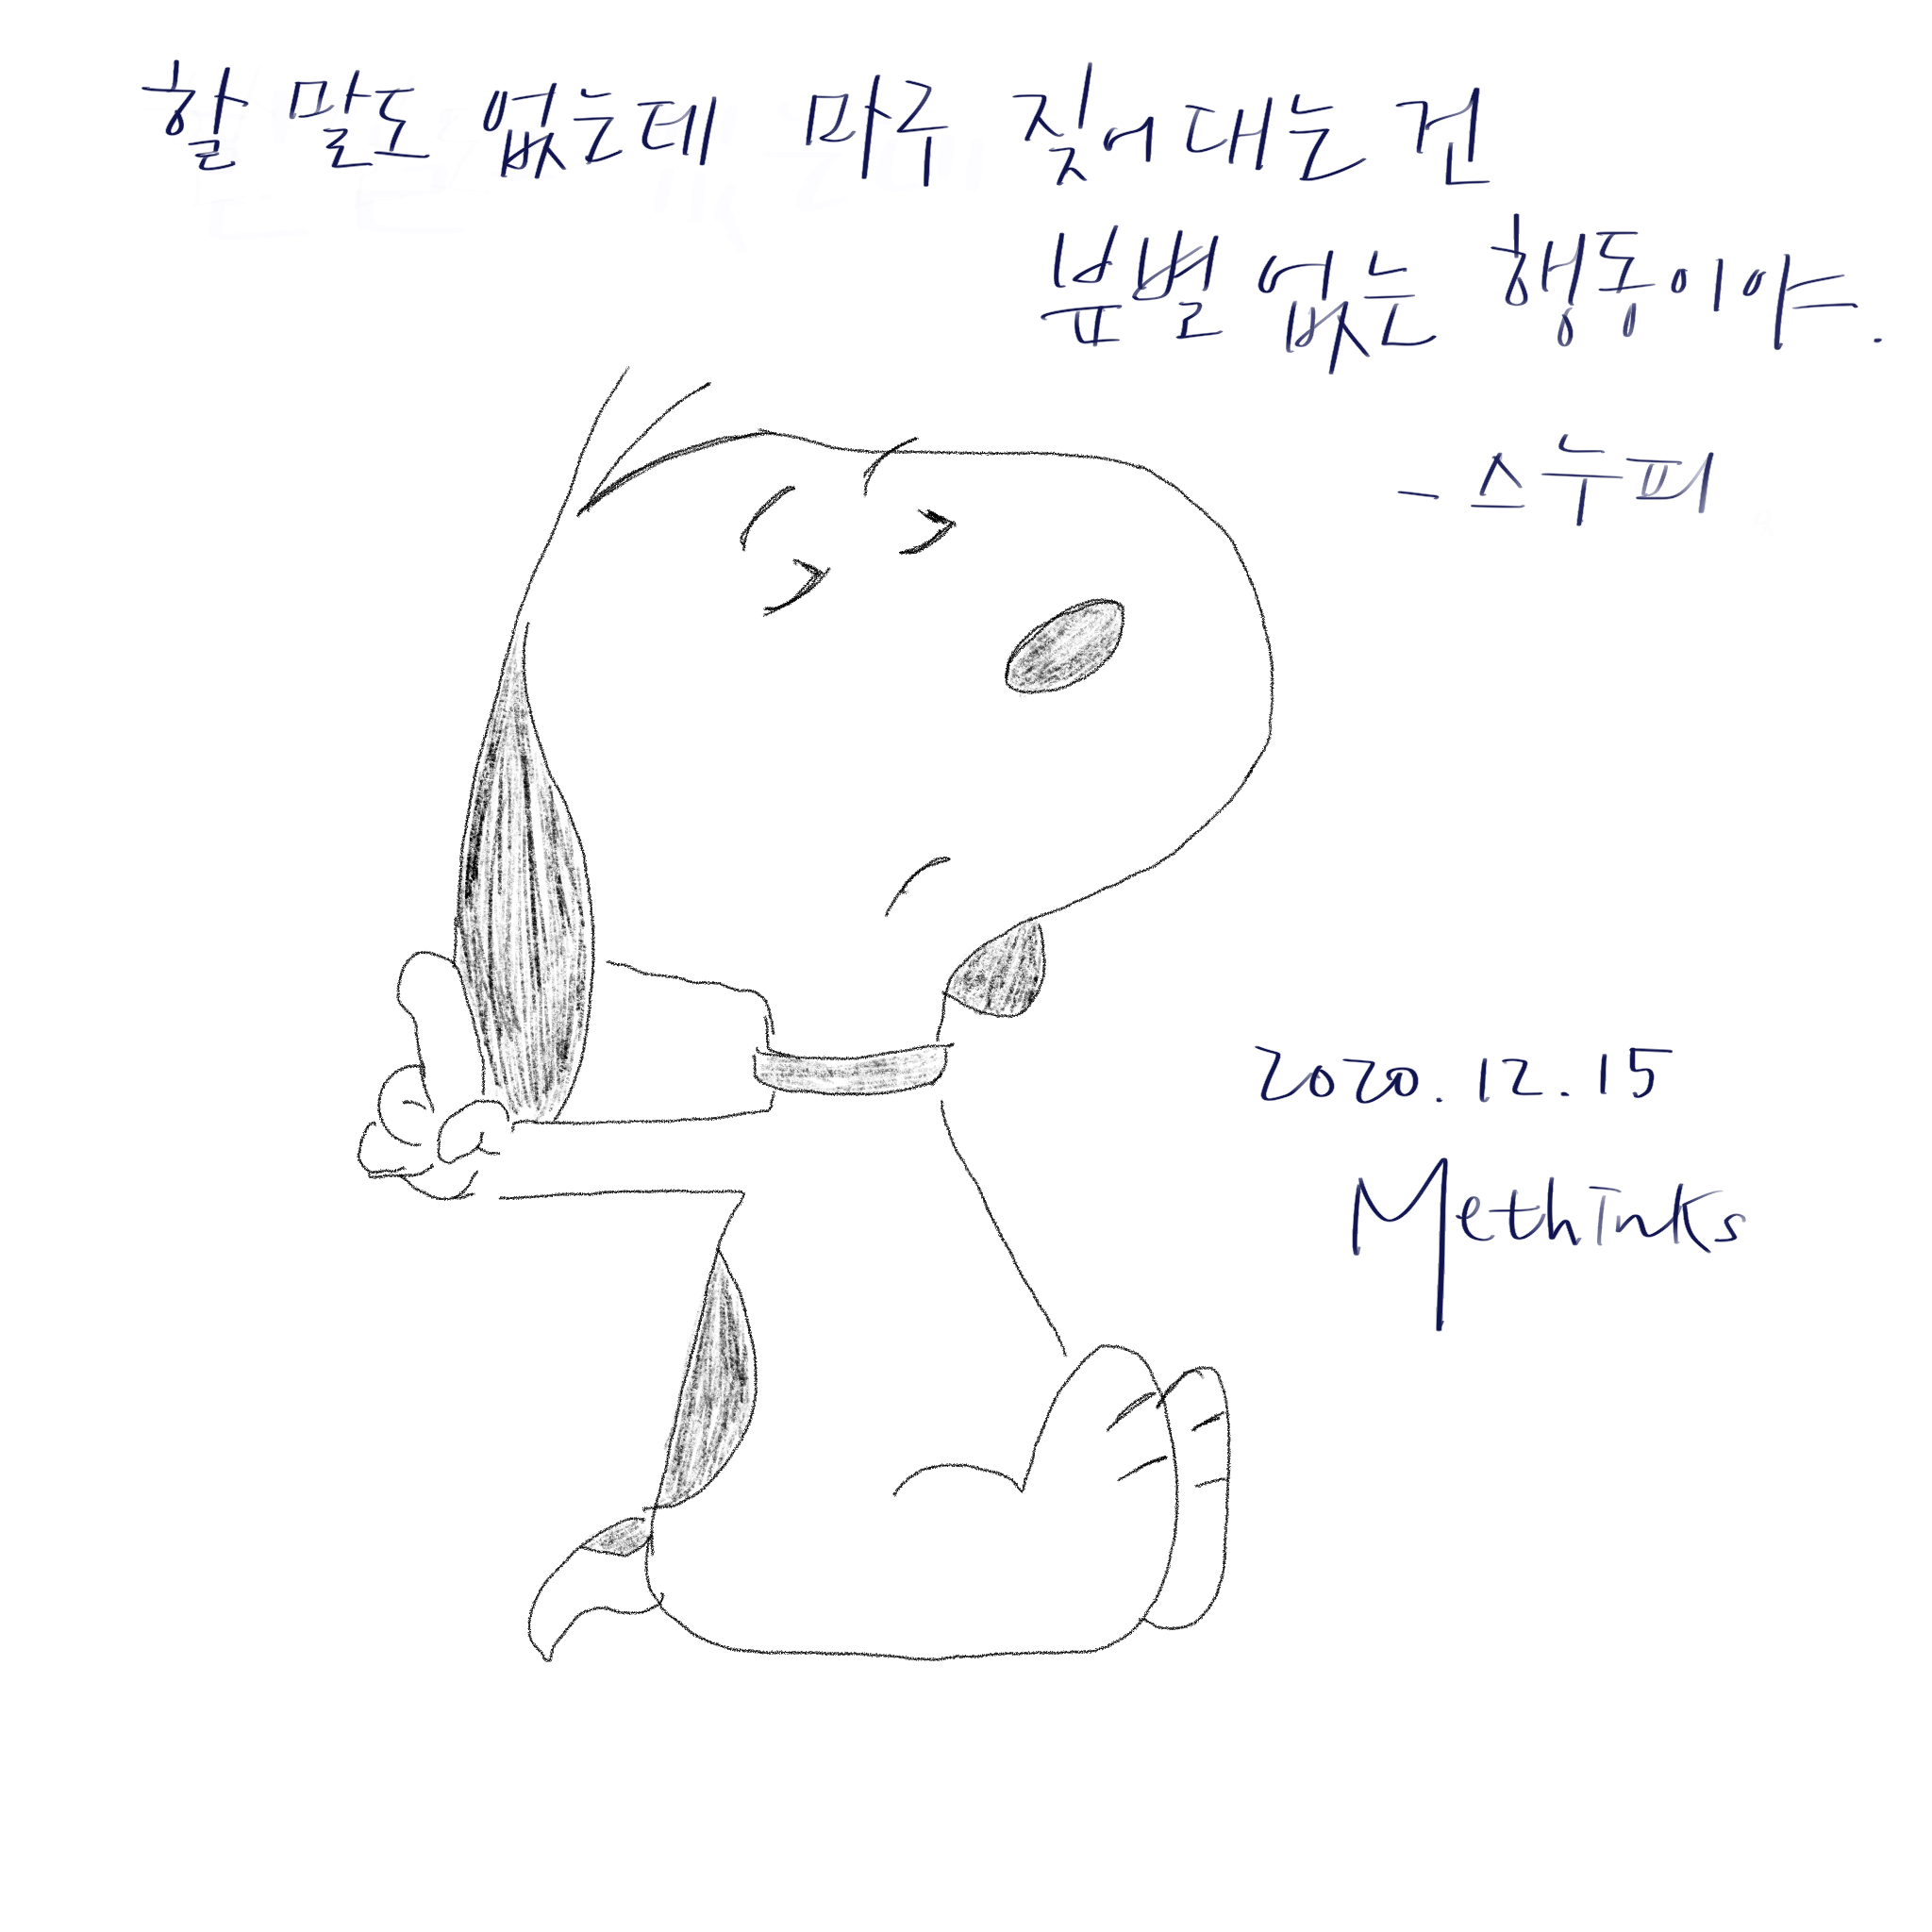 할 말도 없는데 마루 짖어대는 건
분별 없는 행동이야.
- 스누피
2020.12.15
Methinks